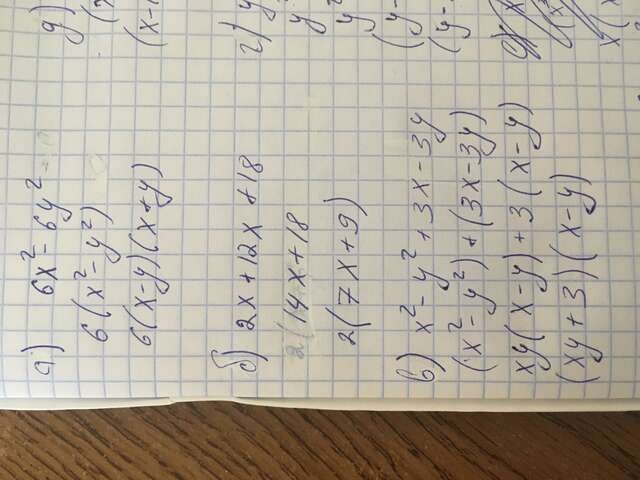 а) 6x² - 6y²
6(x² - y²)
6(x-y)(x+y)
б) 2x+12x+18
14x+18
2(7x+9)
в) x² - y² + 3x - 3y
(x² - y²) + (3x-3y)
xy(x-y)+3(x-y)
(xy+3)(x-y)
г) y
y
y²
(y-
(y-
д)
(x-1